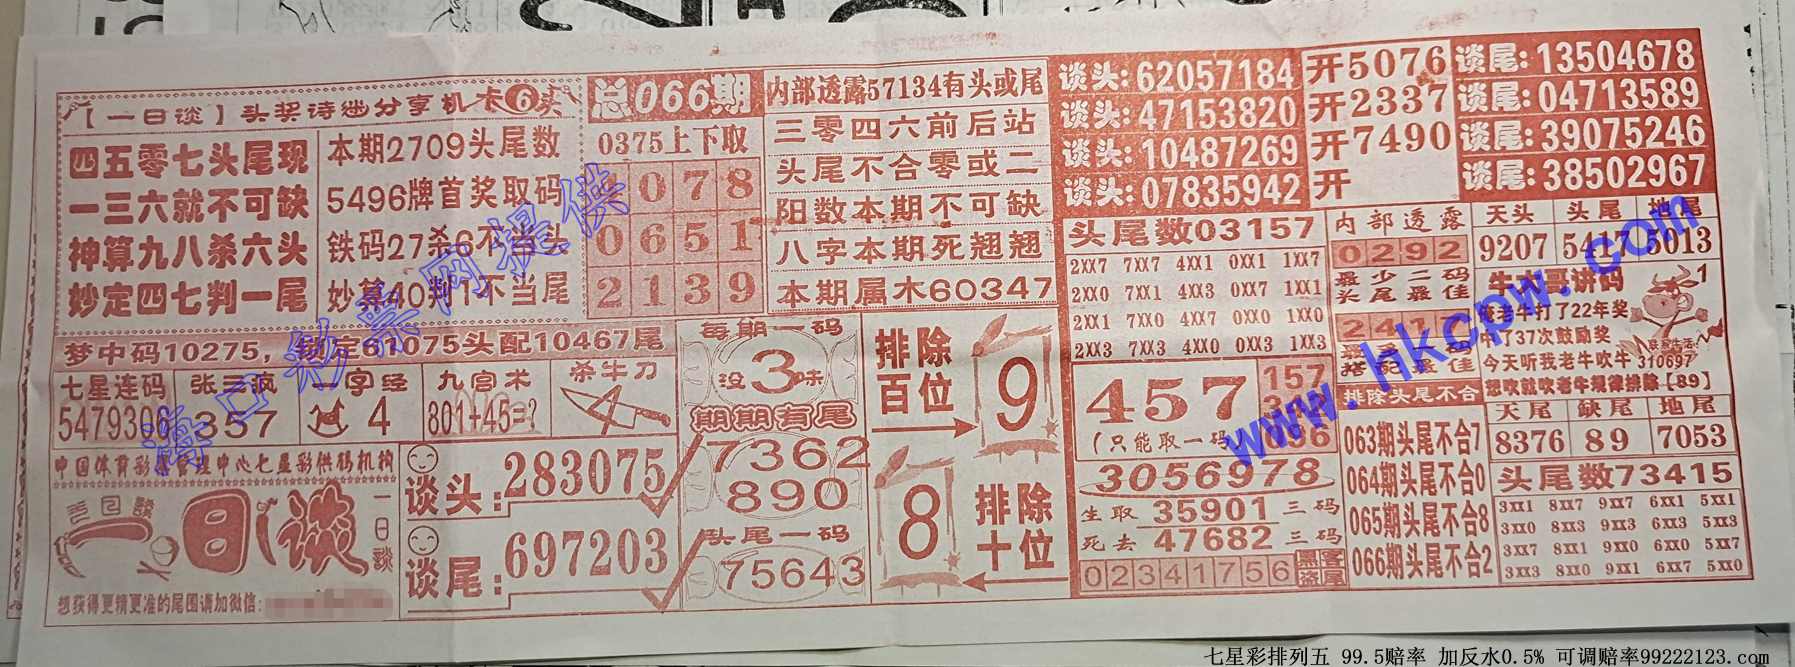 【一日谈】头奖诗谜分享机卡6奖
四五零七头尾现
一三六就不可缺
神算九八杀六头
妙定四七判一尾
本期2709头尾数
5496牌首奖取码
铁码27杀6不当头
妙算40判1不当尾
总066期
0375上下取
078
0651
2139
内部透露57134有头或尾
三零四六前后站
头尾不合零或二
阳数本期不可缺
八字本期死翘翘
本期属木60347
谈头:62057184 开5076 谈尾:13504678
谈头:47153820 开2337 谈尾:04713589
谈头:10487269 开7490 谈尾:39075246
谈头:07835942 开 谈尾:38502967
梦中码10275,锁定61075头配10467尾
七星连码
5479306
张三疯
357
一字经
4
九宫术
801+45=?
杀牛刀
中国体育彩票管理中心七星彩供稿机构
一日谈
一日谈
想获得更精更准的尾图请加微信:
谈头:283075
谈尾:697203
每期一码
没3味
期期有尾
7362
890
头尾一码
75643
排除百位
9
8
排除十位
头尾数03157
2XX7 7XX7 4XX1 0XX1 1XX7
2XX0 7XX1 4XX3 0XX7 1XX1
2XX1 7XX0 4XX7 0XX0 1XX0
2XX3 7XX3 4XX0 0XX3 1XX3
457
(只能取一码)
157
3056978
生取35901三码
死去47682三码
02341756
黑客盗尾
内部透露
0292
最少二码
头尾最佳
搭配最佳
排除头尾不合
063期头尾不合7
064期头尾不合0
065期头尾不合8
066期头尾不合2
天头 头尾 地尾
9207 5417 5013
牛大哥讲码
俺老牛打了22年奖
中了37次鼓励奖
今天听我老牛吹牛
310697
想吹就吹老牛规律排除【89】
天尾 缺尾 地尾
8376 89 7053
头尾数73415
3XX1 8XX7 9XX7 6XX1 5XX1
3XX0 8XX3 9XX3 6XX3 5XX3
3XX7 8XX1 9XX0 6XX0 5XX7
3XX3 8XX0 9XX1 6XX7 5XX0
海口彩票网提供
www.hkcpw.com
七星彩排列五 99.5赔率 加反水0.5% 可调赔率99222123.com